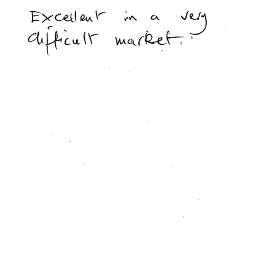 Excellent in a very
difficult market.